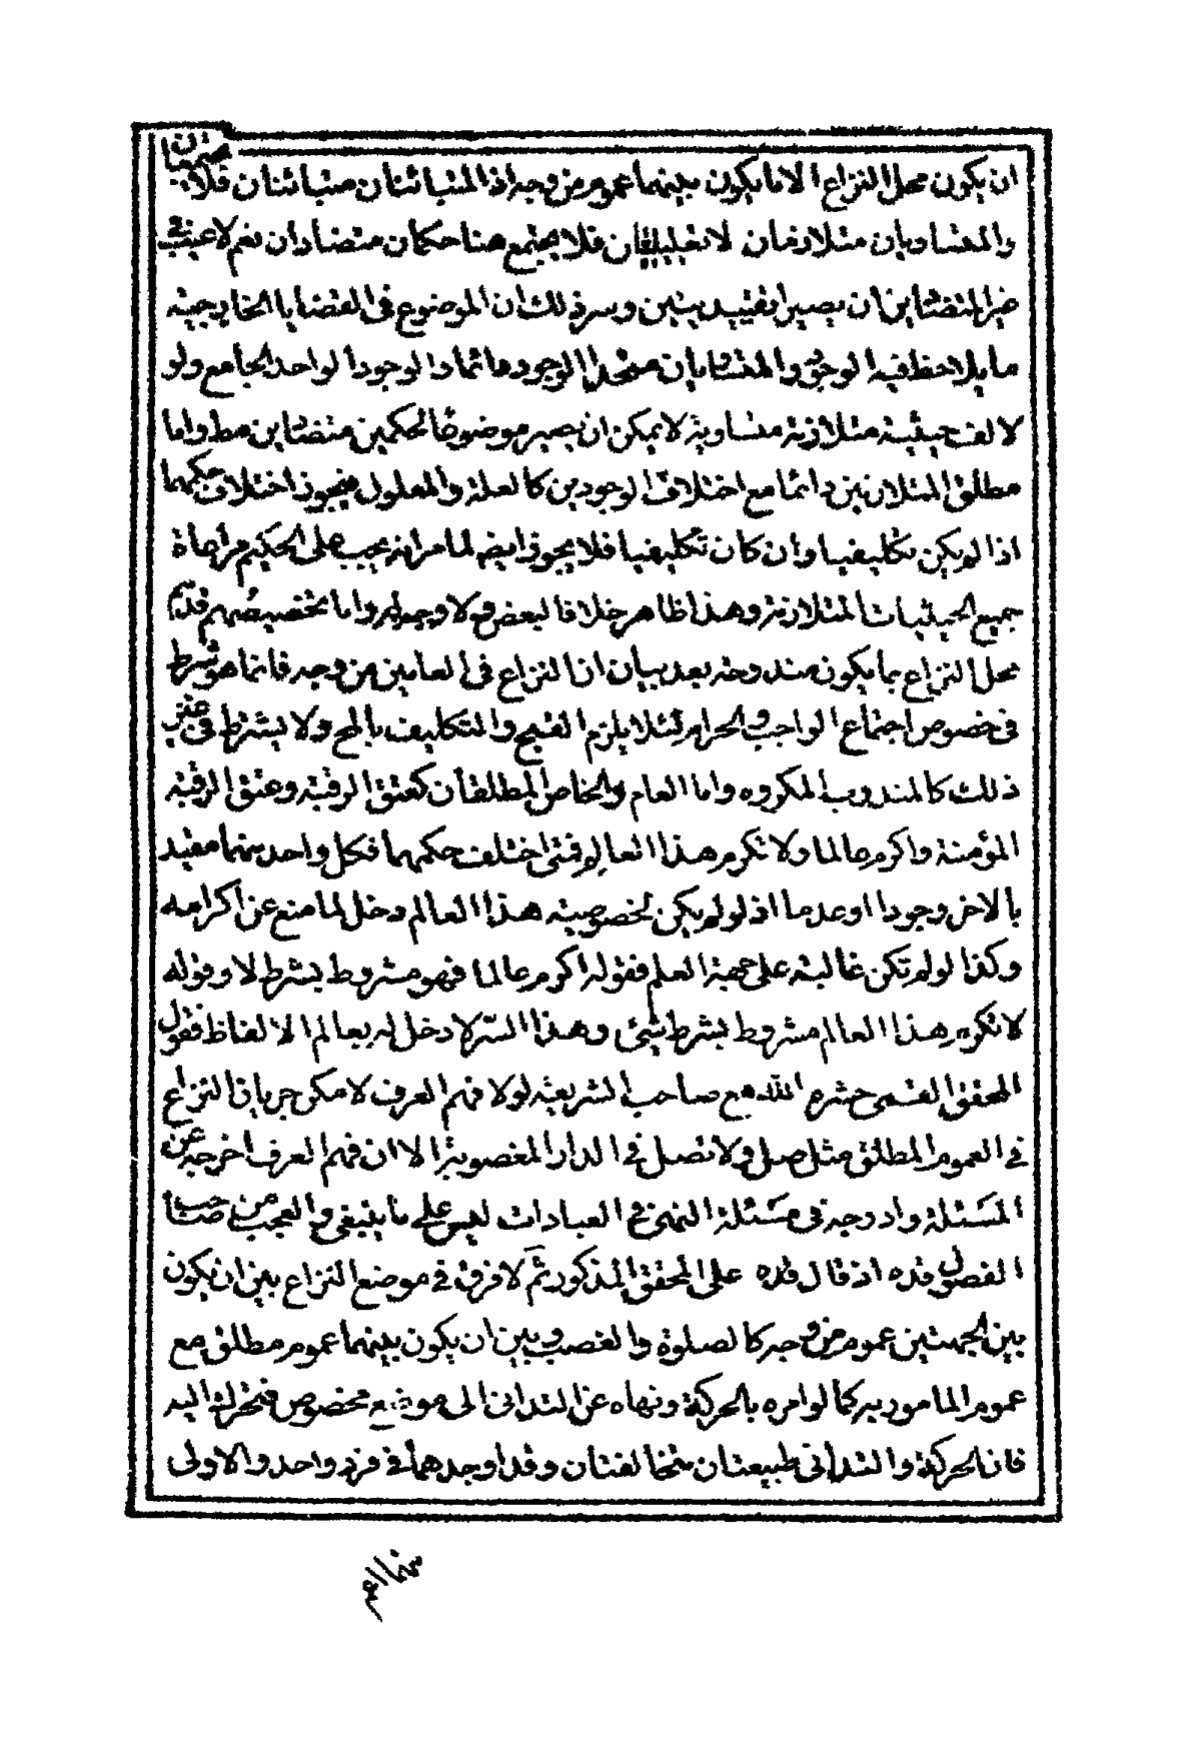 ان يكون محل النزاع الا ما يكون بينهما عموم من وجه اذ المتبائنان متبائنان فلا
والمتساويان متلازمان لا تعليليتان فلا يجتمع هنا حكمان متضادان نعم لا
ضير المتضادين ان يصيرا تقييديتين وسر ذلك ان الموضوع في القضايا الخارجية
ما يلاحظ فيه الوجود والمتساويان متحدا الوجود دائما اذ الوجود الواحد الجامع ولو
لالف حيثية متلازمة متساوية لا يمكن ان يصير موضوعا لحكمين متضادين مط واما
مطلق المتلازمين دائما مع اختلاف الوجودين كالعلة والمعلول فيجوز اختلاف حكمهما
اذا لم يكن تكليفيا وان كان تكليفيا فلا يجوز ايضا لما مر انه يجب على الحكيم مراعاة
جميع الحيثيات المتلازمة وهذا ظاهر خلافا لبعض ولا وجه له واما تخصيصهم قديم
محل النزاع بما يكون مندوحة بعد بيان ان النزاع في العامين من وجه فانما هو شرط
في خصوص اجتماع الواجب والحرام لئلا يلزم القبيح والتكليف بالمح ولا يشترط في غير
ذلك كالمندوب المكروه واما العام والخاص المطلقان كعتق الرقبة وعتق الرقبة
المؤمنة واكرم عالما ولا تكرم هذا العالم فمتى اختلف حكمهما فكل واحد منهما مقيد
بالاخر وجودا او عدما اذ لو لم يكن لخصوصية هذا العالم دخل لما منع عن اكرامه
وكذا لو لم تكن غالبة على جهة العلم فقوله اكرم عالما فهو مشروط بشرط لا وقوله
لا تكرم هذا العالم مشروط بشرط شئ وهذا السر لا دخل له بعالم الالفاظ فقول
المحقق القمي حشره الله مع صاحب الشريعة لولا فهم العرف لامكن جريان النزاع
في العموم المطلق مثل صل ولا تصل في الدار المغصوبة الا ان فهم العرف اخرجه عن
المسئلة وادرجه في مسئلة النهي في العبادات ليس على ما ينبغي والعجب من صاحب
الفصول قده اذ قال قده على المحقق المذكور ثم لا فرق في موضع النزاع بين ان يكون
بين الجهتين عموم من وجه كالصلوة والغصب وبين ان يكون بينهما عموم مطلق مع
عموم المامور به كما لو امره بالحركة ونهاه عن التداني الى موضع مخصوص فتحرك اليه
فان الحركة والتداني طبيعتان متخالفتان وقد اوجدهما في فرد واحد والاولى
منهما اعم